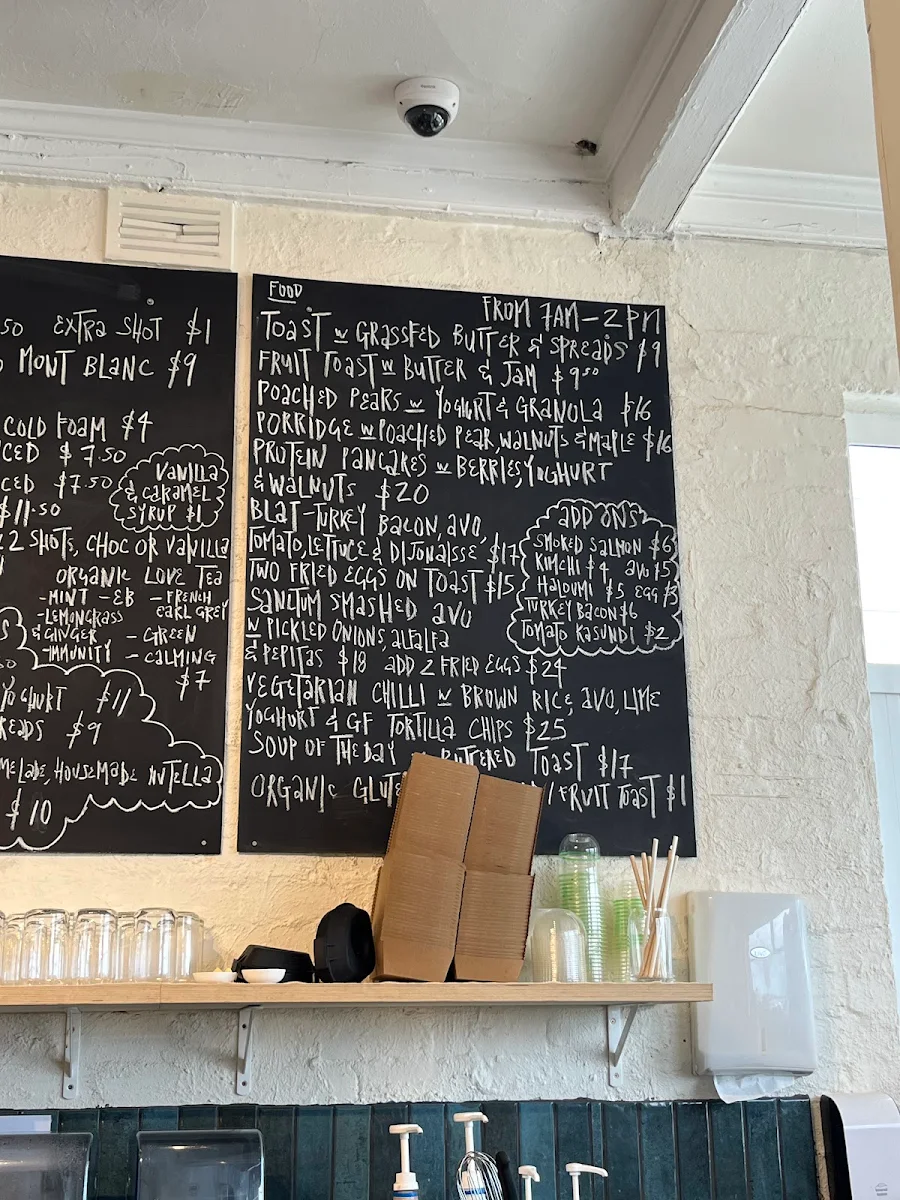 50 EXTRA SHOT $1
MONT BLANC $9
COLD FOAM $4
CED $7.50
CED $7.50
$11.50
VANILLA
& CARAMEL
SYRUP $1
2 SHOTS, CHOC OR VANILLA
ORGANIC LOVE TEA
-MINT -EB -FRENCH
EARL GREY
-LEMONGRASS
& GINGER -GREEN
-IMMUNITY -CALMING
$7
YOGHURT $11
READS $9
MELADE, HOUSEMADE NUTELLA
$10
FOOD
FROM 7AM-2PM
TOAST W GRASSFED BUTTER & SPREADS $9
FRUIT TOAST W BUTTER & JAM $9.50
POACHED PEARS W YOGHURT & GRANOLA $16
PORRIDGE W POACHED PEAR, WALNUTS & MAPLE $16
PROTEIN PANCAKES W BERRIES, YOGHURT
& WALNUTS $20
BLAT-TURKEY BACON, AVO,
TOMATO, LETTUCE & DIJONAISSE $17
TWO FRIED EGGS ON TOAST $15
SANCTUM SMASHED AVO
W PICKLED ONIONS, ALFALFA
& PEPITAS $18 ADD 2 FRIED EGGS $24
VEGETARIAN CHILLI W BROWN RICE, AVO, LIME
YOGHURT & GF TORTILLA CHIPS $25
SOUP OF THE DAY BUTTERED TOAST $17
ORGANIC GLUTE / FRUIT TOAST $1
ADD ONS
SMOKED SALMON $6
KIMCHI $4 AVO $5
HALOUMI $5 EGG $3
TURKEY BACON $6
TOMATO KASUNDI $2